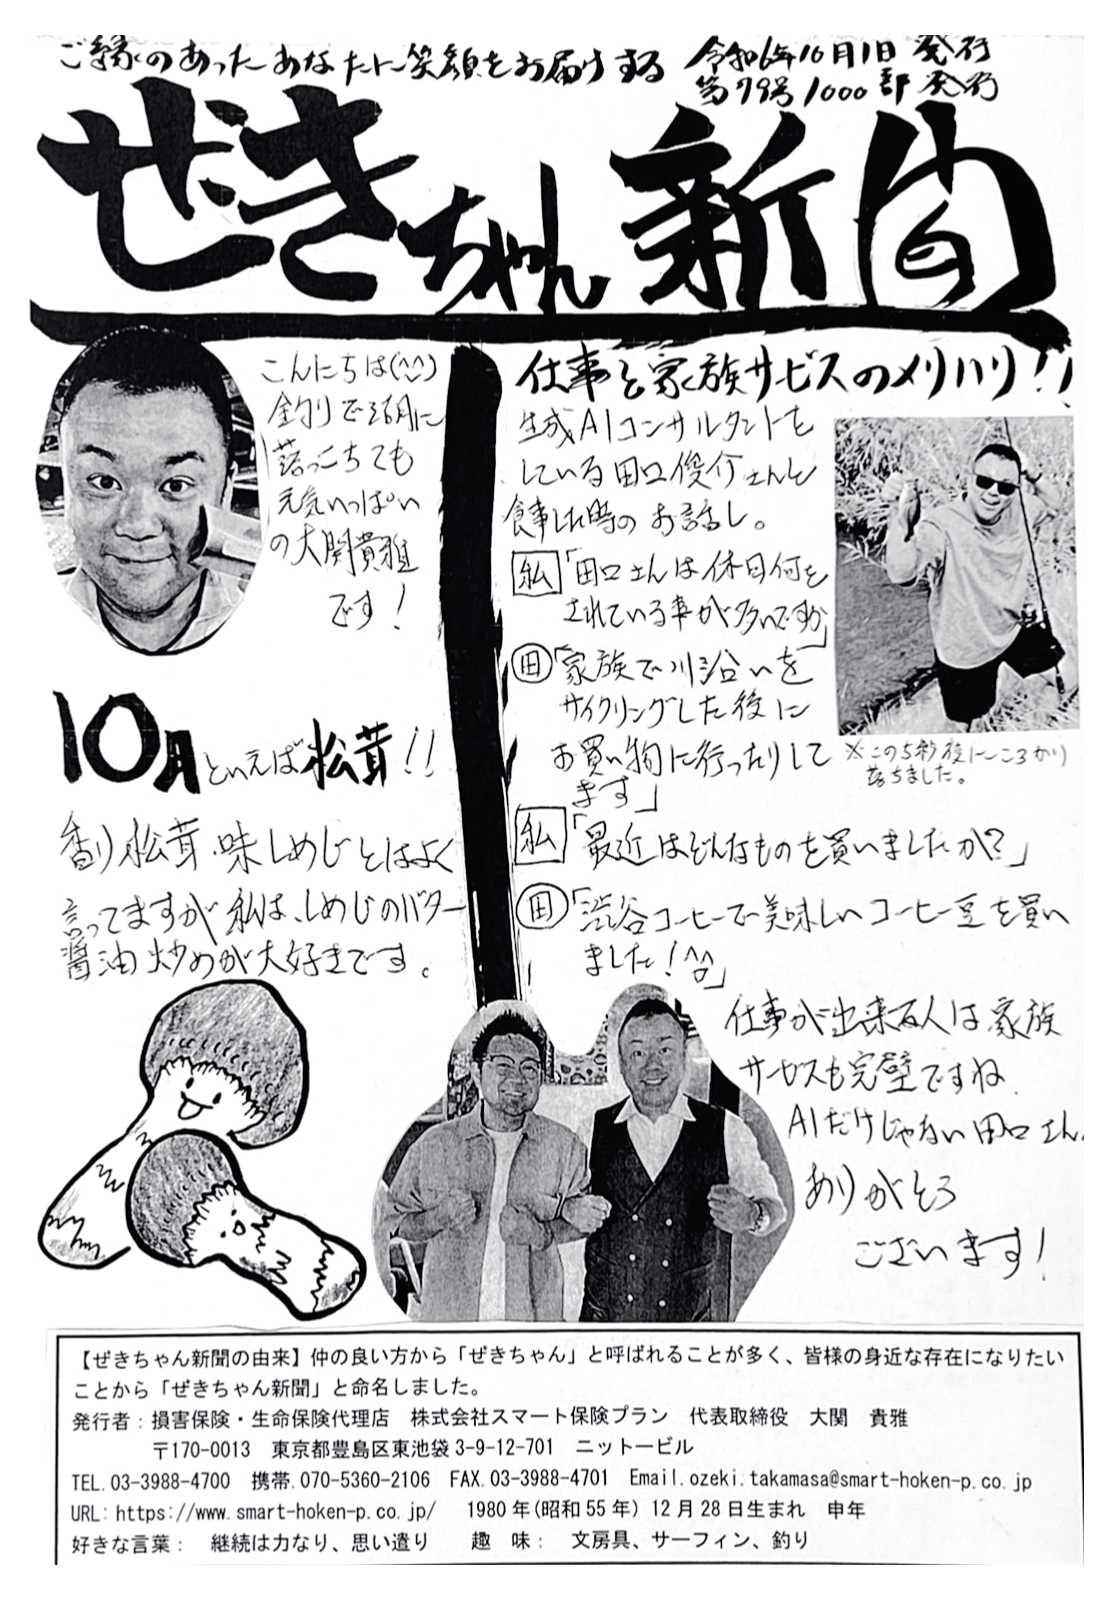 ご縁のあったあなたに笑顔をお届けする
令和6年10月1日 発行
第79号 1000部 発行
ぜきちゃん新聞
こんにちは(^^)
釣りで3ヶ月に
落っこちても
元気いっぱい
の大関貴雅
です!
10月といえば松茸!!
香り松茸、味しめじとはよく
言ってますが私は、しめじのバター
醤油炒めが大好きです。
仕事と家族サービスのメリハリ!!
生成AIコンサルタントを
している田口俊介さんと
食事した時のお話し。
私「田口さんは休日何を
されている事が多いですか」
田「家族で川沿いを
サイクリングした後に
お買い物に行ったりして
ます」
※この5秒後にころがり
落ちました。
私「最近はどんなものを買いましたか?」
田「渋谷コーヒーで美味しいコーヒー豆を買い
ました!^^」
仕事が出来る人は家族
サービスも完璧ですね
AIだけじゃない田口さん、
ありがとう
ございます!
【ぜきちゃん新聞の由来】仲の良い方から「ぜきちゃん」と呼ばれることが多く、皆様の身近な存在になりたい
ことから「ぜきちゃん新聞」と命名しました。
発行者:損害保険・生命保険代理店 株式会社スマート保険プラン 代表取締役 大関 貴雅
〒170-0013 東京都豊島区東池袋3-9-12-701 ニットービル
TEL.03-3988-4700 携帯.070-5360-2106 FAX.03-3988-4701 Email.ozeki.takamasa@smart-hoken-p.co.jp
URL:https://www.smart-hoken-p.co.jp/ 1980年(昭和55年)12月28日生まれ 申年
好きな言葉: 継続は力なり、思い遣り 趣 味: 文房具、サーフィン、釣り